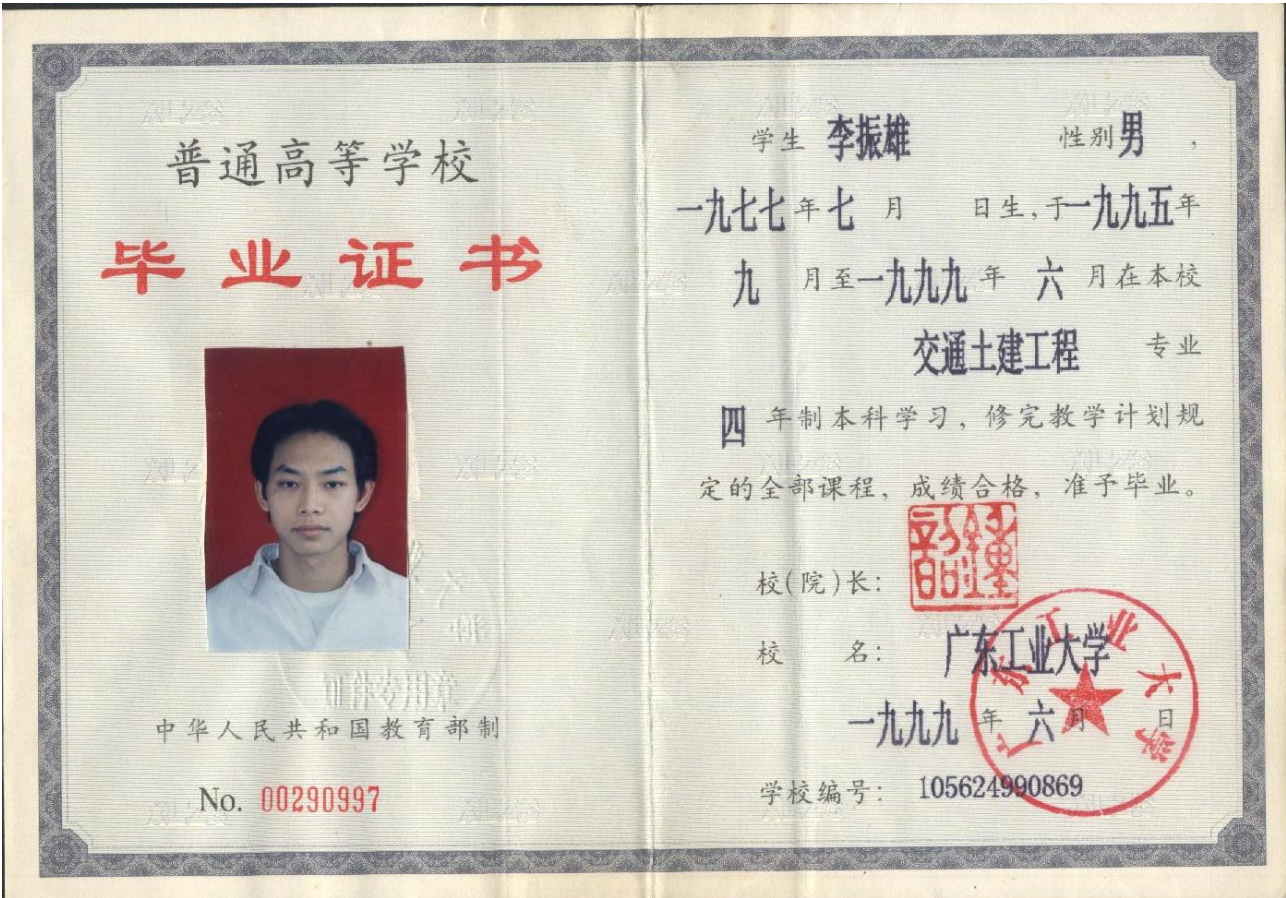 普通高等学校
毕业证书
中华人民共和国教育部制
No. 00290997
学生 李振雄 性别 男 ,
一九七七年七月 日生,于一九九五年
九月至一九九九年六月在本校
交通土建工程 专业
四年制本科学习,修完教学计划规
定的全部课程,成绩合格,准予毕业。
校(院)长:
校 名: 广东工业大学
广东工业大学
一九九九年六月 日
学校编号: 105624990869